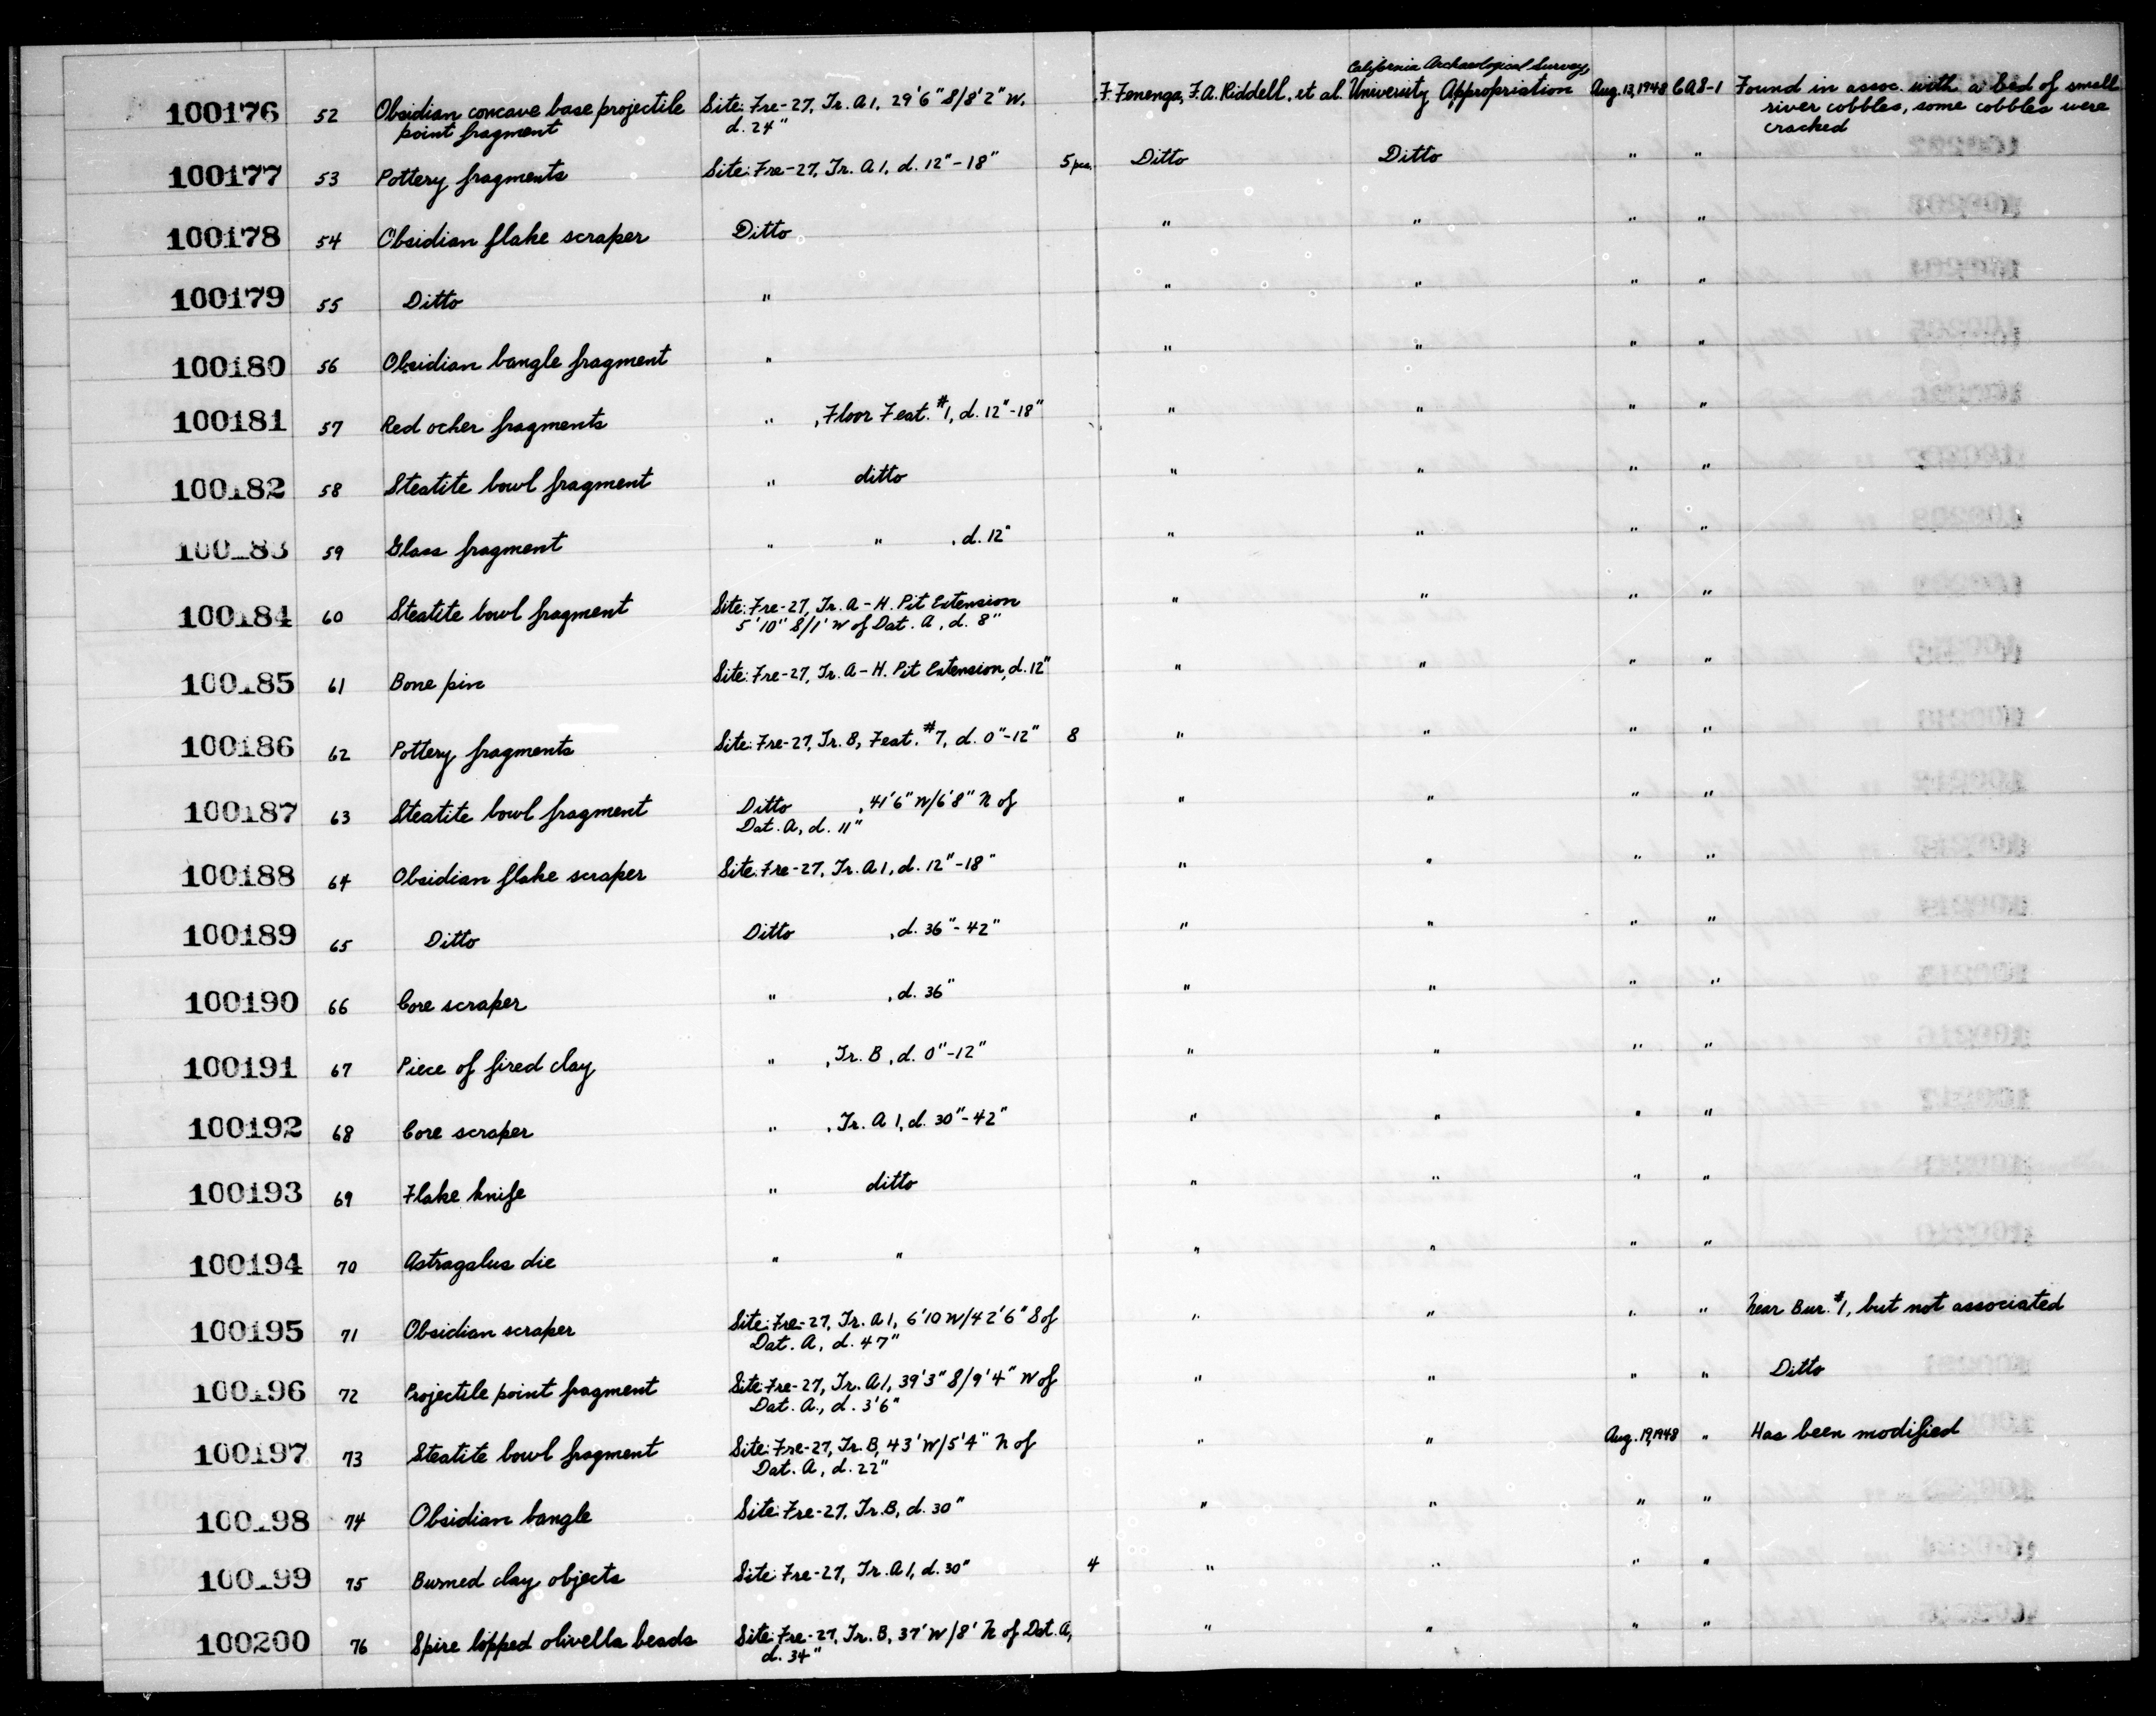 California Archaeological Survey,
100176 52 Obsidian concave base projectile Site: Fre-27, Tr. A1, 29'6" S/8'2" W, F. Fenenga, F.A. Riddell, et al. University Appropriation Aug. 13, 1948 CAS-1 Found in assoc. with a bed of small
point fragment d. 24" river cobbles, some cobbles were
cracked
100177 53 Pottery fragments Site: Fre-27, Tr. A1, d. 12"-18" 5 pcs. Ditto Ditto " "
100178 54 Obsidian flake scraper Ditto " " " "
100179 55 Ditto " " " " "
100180 56 Obsidian bangle fragment " " " " "
100181 57 Red ocher fragments " , Floor Feat. #1, d. 12"-18" " " " "
100182 58 Steatite bowl fragment " ditto " " " "
100183 59 Glass fragment " " , d. 12" " " " "
100184 60 Steatite bowl fragment Site: Fre-27, Tr. A-H. Pit Extension " " " "
5'10" S/1' W of Dat. A, d. 8"
100185 61 Bone pin Site: Fre-27, Tr. A-H. Pit Extension, d. 12" " " " "
100186 62 Pottery fragments Site: Fre-27, Tr. B, Feat. #7, d. 0"-12" 8 " " " "
100187 63 Steatite bowl fragment Ditto , 41'6" W/6'8" N of " " " "
Dat. A, d. 11"
100188 64 Obsidian flake scraper Site: Fre-27, Tr. A1, d. 12"-18" " " " "
100189 65 Ditto Ditto , d. 36"-42" " " " "
100190 66 Core scraper " , d. 36" " " " "
100191 67 Piece of fired clay " , Tr. B, d. 0"-12" " " " "
100192 68 Core scraper " , Tr. A1, d. 30"-42" " " " "
100193 69 Flake knife " ditto " " " "
100194 70 Astragalus die " " " " " "
100195 71 Obsidian scraper Site: Fre-27, Tr. A1, 6'10 W/42'6" S of " " " " Near Bur. #1, but not associated
Dat. A, d. 47"
100196 72 Projectile point fragment Site: Fre-27, Tr. A1, 39'3" S/9'4" W of " " " " Ditto
Dat. A., d. 3'6"
100197 73 Steatite bowl fragment Site: Fre-27, Tr. B, 43' W/5'4" N of " " Aug. 19, 1948 " Has been modified
Dat. A, d. 22"
100198 74 Obsidian bangle Site: Fre-27, Tr. B, d. 30" " " " "
100199 75 Burned clay objects Site: Fre-27, Tr. A1, d. 30" 4 " " " "
100200 76 Spire lopped olivella beads Site: Fre-27, Tr. B, 37' W/8' N of Dat. A, " " " "
d. 34"